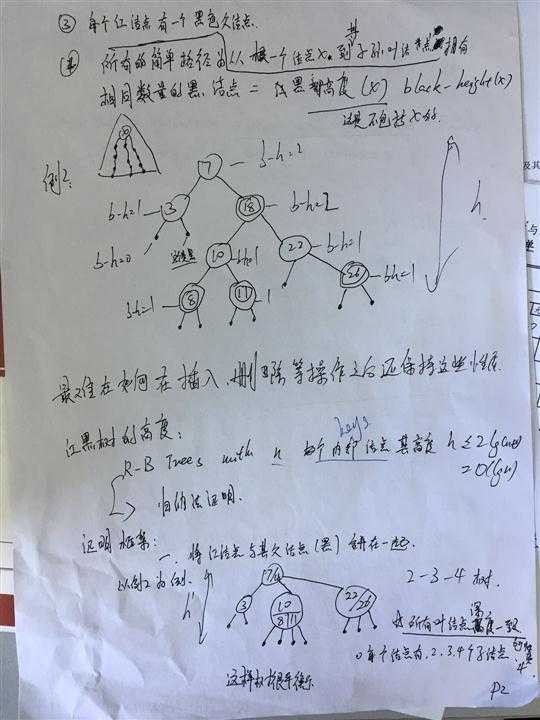 ③ 每个红结点有一个黑色父结点.
④ 所有的简单路径为从一个结点x 到其子孙叶结点拥有
相同数量的黑结点 = 黑高度(x) black-height(x)
这是不包括x的.
例2:
7 — b-h=2
b-h=1 — 3
18 — b-h=2
b-h=0
10 — bh=1
22 — b-h=1
h
26 — bh=1
b-h=1 8
11 — 1
最难在如何在插入、删除等操作之后还保持这些性质.
红黑树的高度:
keys
R-B Trees with n 个内部结点其高度 h ≤ 2lg(n+1)
= O(lgn)
归纳法证明.
证明框架:
一. 将红结点与其父结点(黑)合并在一起.
以例2为例.
h'
3
10
8 11
22/26
2-3-4 树.
所有叶结点深度一致
每个结点有2.3.4个子结点
这样树很平衡了
P2